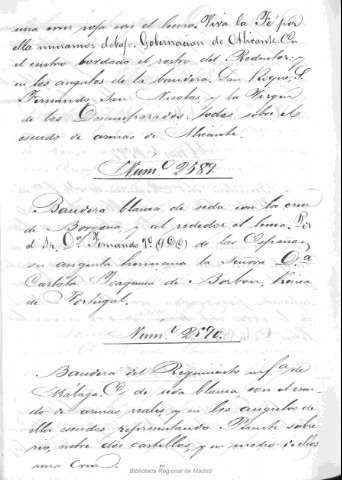 una cruz roja con el lema. Viva la Fé por
ella muramos debajo. Gobernacion de Alicante. En
el centro bordado el rostro del Redentor, y
en los angulos de la bandera, San Roque, S.
Fernando, San Nicolas, y la Virgen
de los Desamparados, todos sobre el
escudo de armas de Alicante.
Num.º 2589.
Bandera blanca de seda con la cruz
de Borgoña y al rededor el lema. Por
el Sr. Dn. Fernando 7º (Q.D.G.) de las Españas,
su augusta hermana la Señora D.ª
Carlota Joaquina de Borbon, Reina
de Portugal.
Num.º 2590.
Bandera del Regimiento inf.ª de
Málaga. Es de seda blanca con el escu-
do de armas reales, y en los angulos de
ella escudos representando Puente sobre
rio, entre dos castillos, y en medio de ellos
una Cruz.
Biblioteca Regional de Madrid